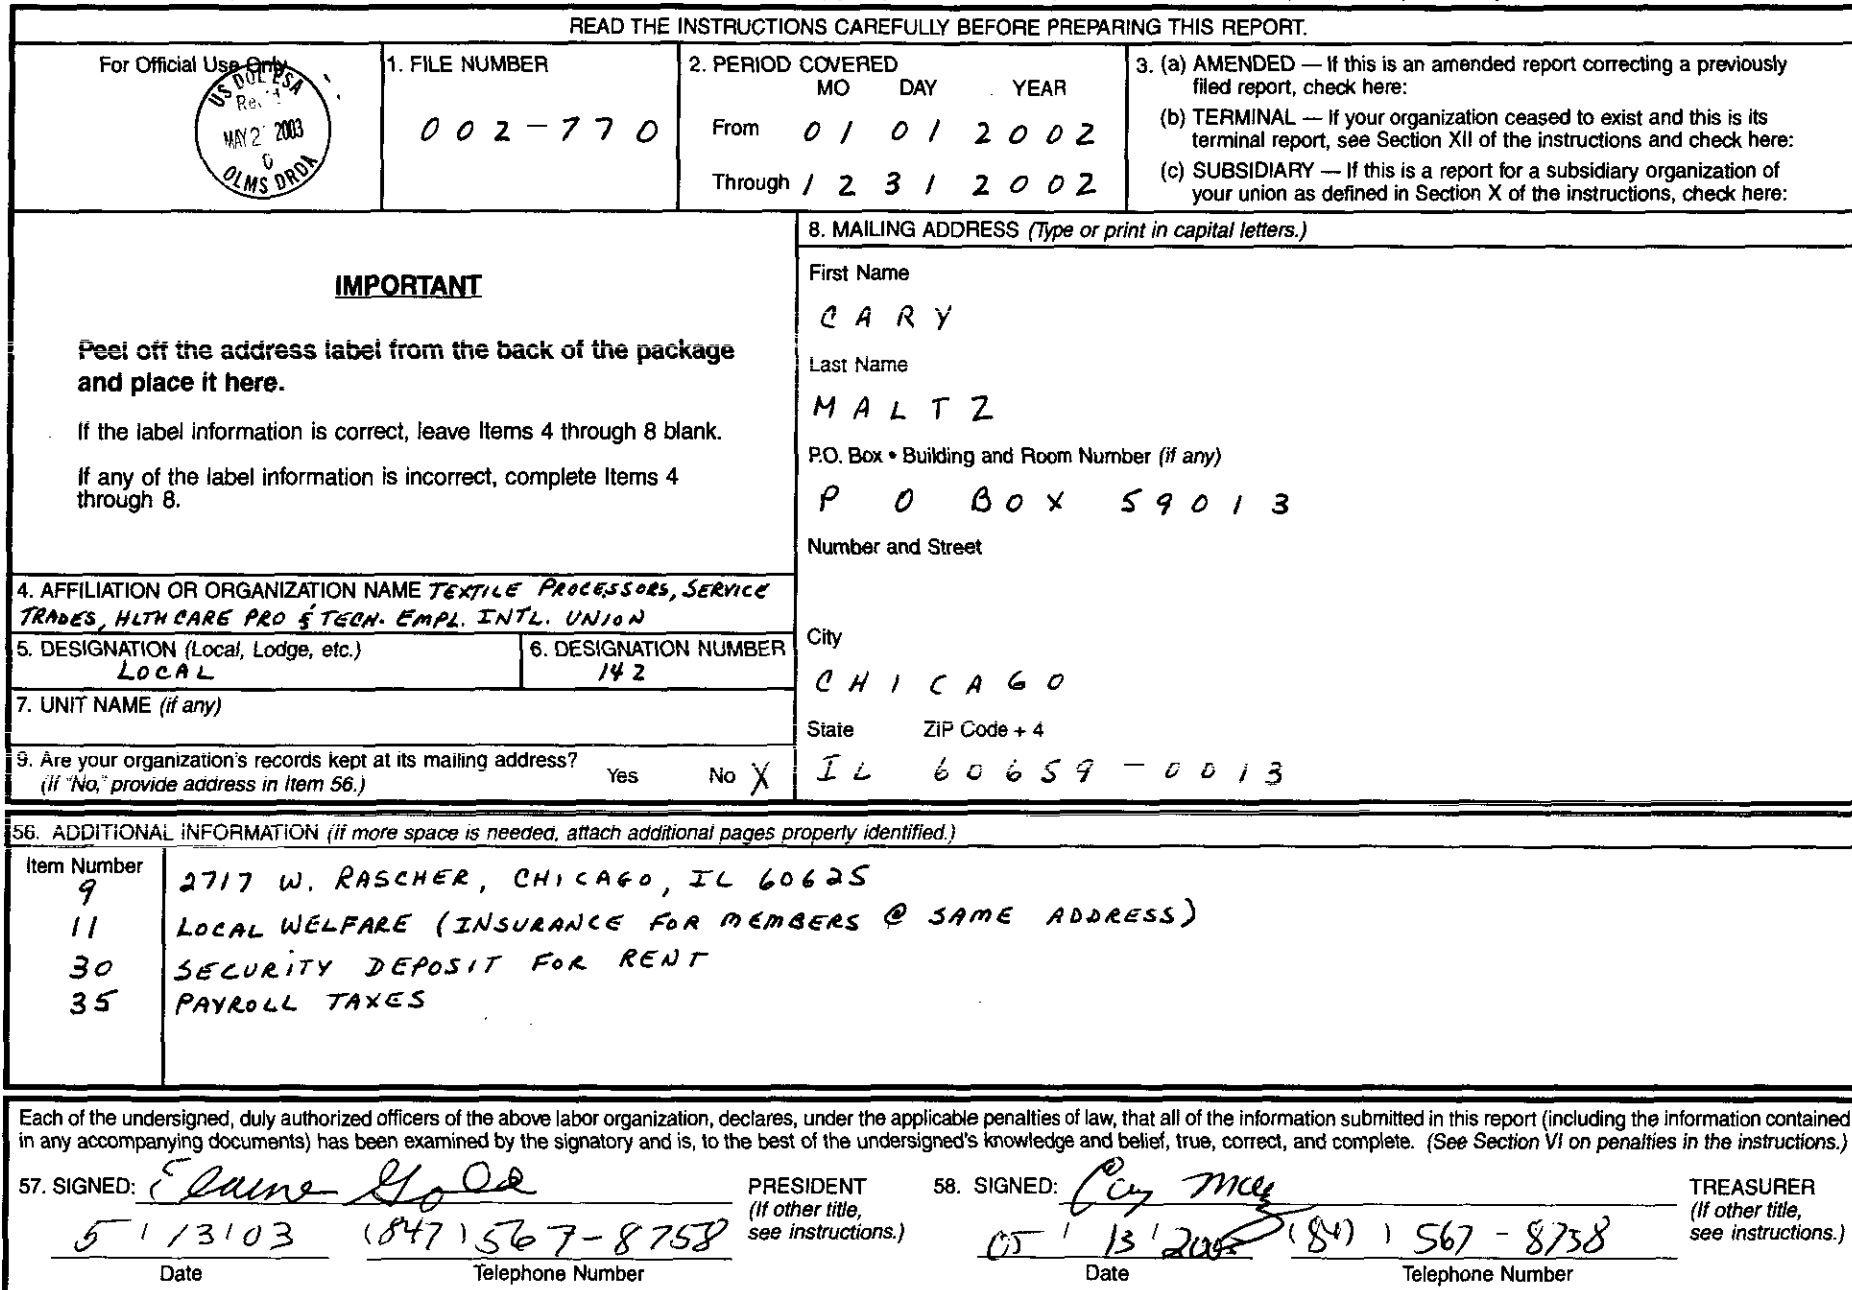 READ THE INSTRUCTIONS CAREFULLY BEFORE PREPARING THIS REPORT.
For Official Use Only
US DOL ESA
MAY 2 2003
OLMS DRDA
1. FILE NUMBER
002-770
2. PERIOD COVERED
MO DAY YEAR
From 01 01 2002
Through 12 31 2002
3. (a) AMENDED — If this is an amended report correcting a previously
filed report, check here:
(b) TERMINAL — If your organization ceased to exist and this is its
terminal report, see Section XII of the instructions and check here:
(c) SUBSIDIARY — If this is a report for a subsidiary organization of
your union as defined in Section X of the instructions, check here:
IMPORTANT
Peel off the address label from the back of the package
and place it here.
If the label information is correct, leave Items 4 through 8 blank.
If any of the label information is incorrect, complete Items 4
through 8.
4. AFFILIATION OR ORGANIZATION NAME TEXTILE PROCESSORS, SERVICE
TRADES, HLTH CARE PRO & TECH. EMPL. INTL. UNION
5. DESIGNATION (Local, Lodge, etc.)
LOCAL
6. DESIGNATION NUMBER
142
7. UNIT NAME (if any)
9. Are your organization's records kept at its mailing address?
(If "No," provide address in Item 56.)
Yes No X
8. MAILING ADDRESS (Type or print in capital letters.)
First Name
CARY
Last Name
MALTZ
P.O. Box • Building and Room Number (if any)
P O BOX 59013
Number and Street
City
CHICAGO
State ZIP Code + 4
IL 60659-0013
56. ADDITIONAL INFORMATION (If more space is needed, attach additional pages properly identified.)
Item Number
9 2717 W. RASCHER, CHICAGO, IL 60625
11 LOCAL WELFARE (INSURANCE FOR MEMBERS @ SAME ADDRESS)
30 SECURITY DEPOSIT FOR RENT
35 PAYROLL TAXES
Each of the undersigned, duly authorized officers of the above labor organization, declares, under the applicable penalties of law, that all of the information submitted in this report (including the information contained
in any accompanying documents) has been examined by the signatory and is, to the best of the undersigned's knowledge and belief, true, correct, and complete. (See Section VI on penalties in the instructions.)
57. SIGNED: Elaine
5/13/03 (847) 567-8758
Date Telephone Number
PRESIDENT
(If other title,
see instructions.)
58. SIGNED:
05 / 13 / (847) 567-8758
Date Telephone Number
TREASURER
(If other title,
see instructions.)